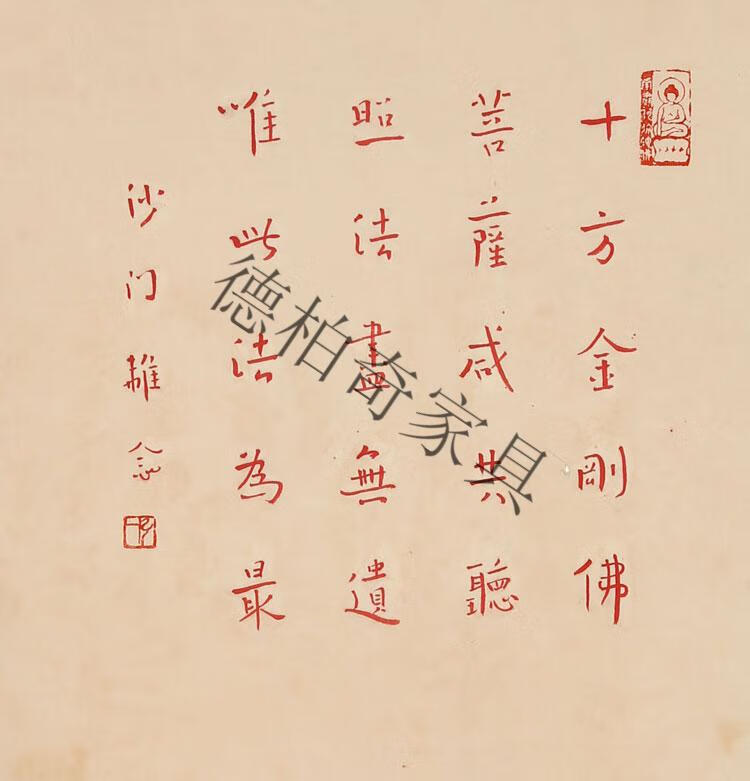 十方金剛佛
菩薩咸共聽
照法盡無遺
唯此法為最
沙门離念
德柏奇家具